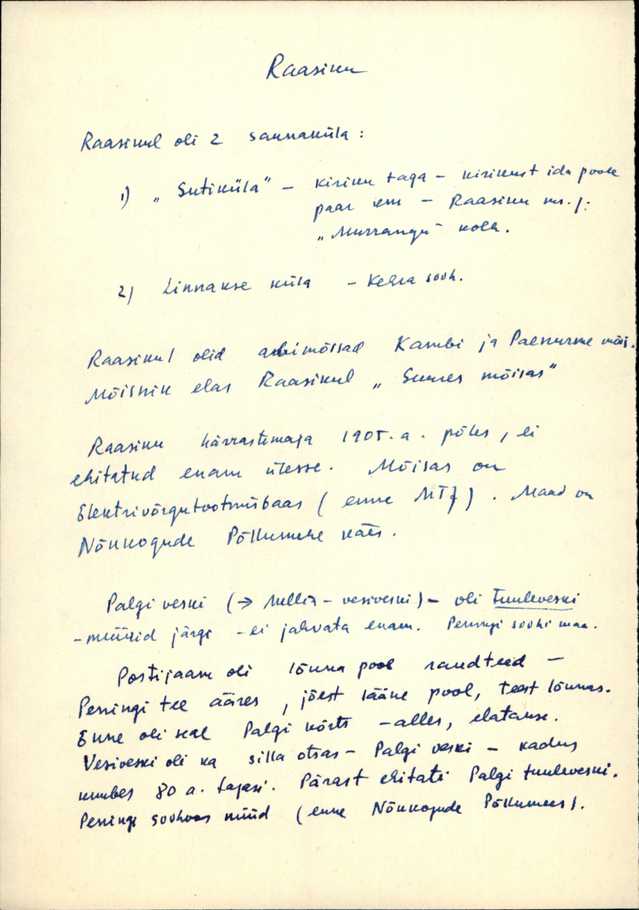 Raasiku
Raasikul oli 2 saunaküla:
1) „Sutiküla" – kiriku taga – kirikust ida poole
paar km – Raasiku
„Murrangu" kolh.
2) Linnakse küla – Kehra sovh.
Raasikul olid abimõisad Kambi ja Paemurme mõis.
Mõisnik elas Raasikul „Suures mõisas"
Raasiku härrastemaja 1905. a. põles, ei
ehitatud enam ülesse. Mõisas on
Elektrivõrgutootmisbaas (enne MTJ). Maad on
Nõukogude Põllumehe käes.
Palgi veski (→ – vesiveski) – oli tuuleveski
– müürid järgi – ei jahvata enam. Peningi sovhi maa.
Postijaam oli lõuna pool raudteed –
Peningi tee ääres, jõest lääne pool, teest lõunas.
Enne oli seal Palgi kõrts – alles, elatakse.
Vesiveski oli ka silla otsas – Palgi veski – kadus
umbes 80 a. tagasi. Pärast ehitati Palgi tuuleveski.
Peningi sovhoos nüüd (enne Nõukogude Põllumees).